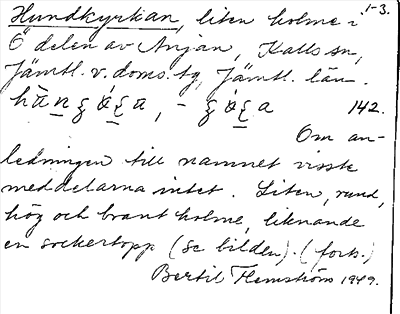 Hundkyrkan, liten holme i 1-3.
Ö delen av Anjan, Kalls sn,
Jämtl. v. doms. tg, Jämtl. län.
142.
Om an-
ledningen till namnet visste
meddelarna intet. Liten, rund,
hög och brant holme, liknande
en sockertopp (se bilden). (forts.)
Bertil Flemström 1949.